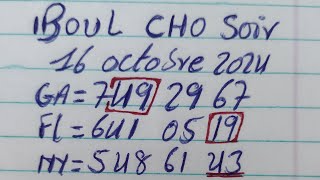 BOUL CHO Soir
16 octobre 2024
GA=749 29 67
Fl=641 05 19
NY=548 61 43